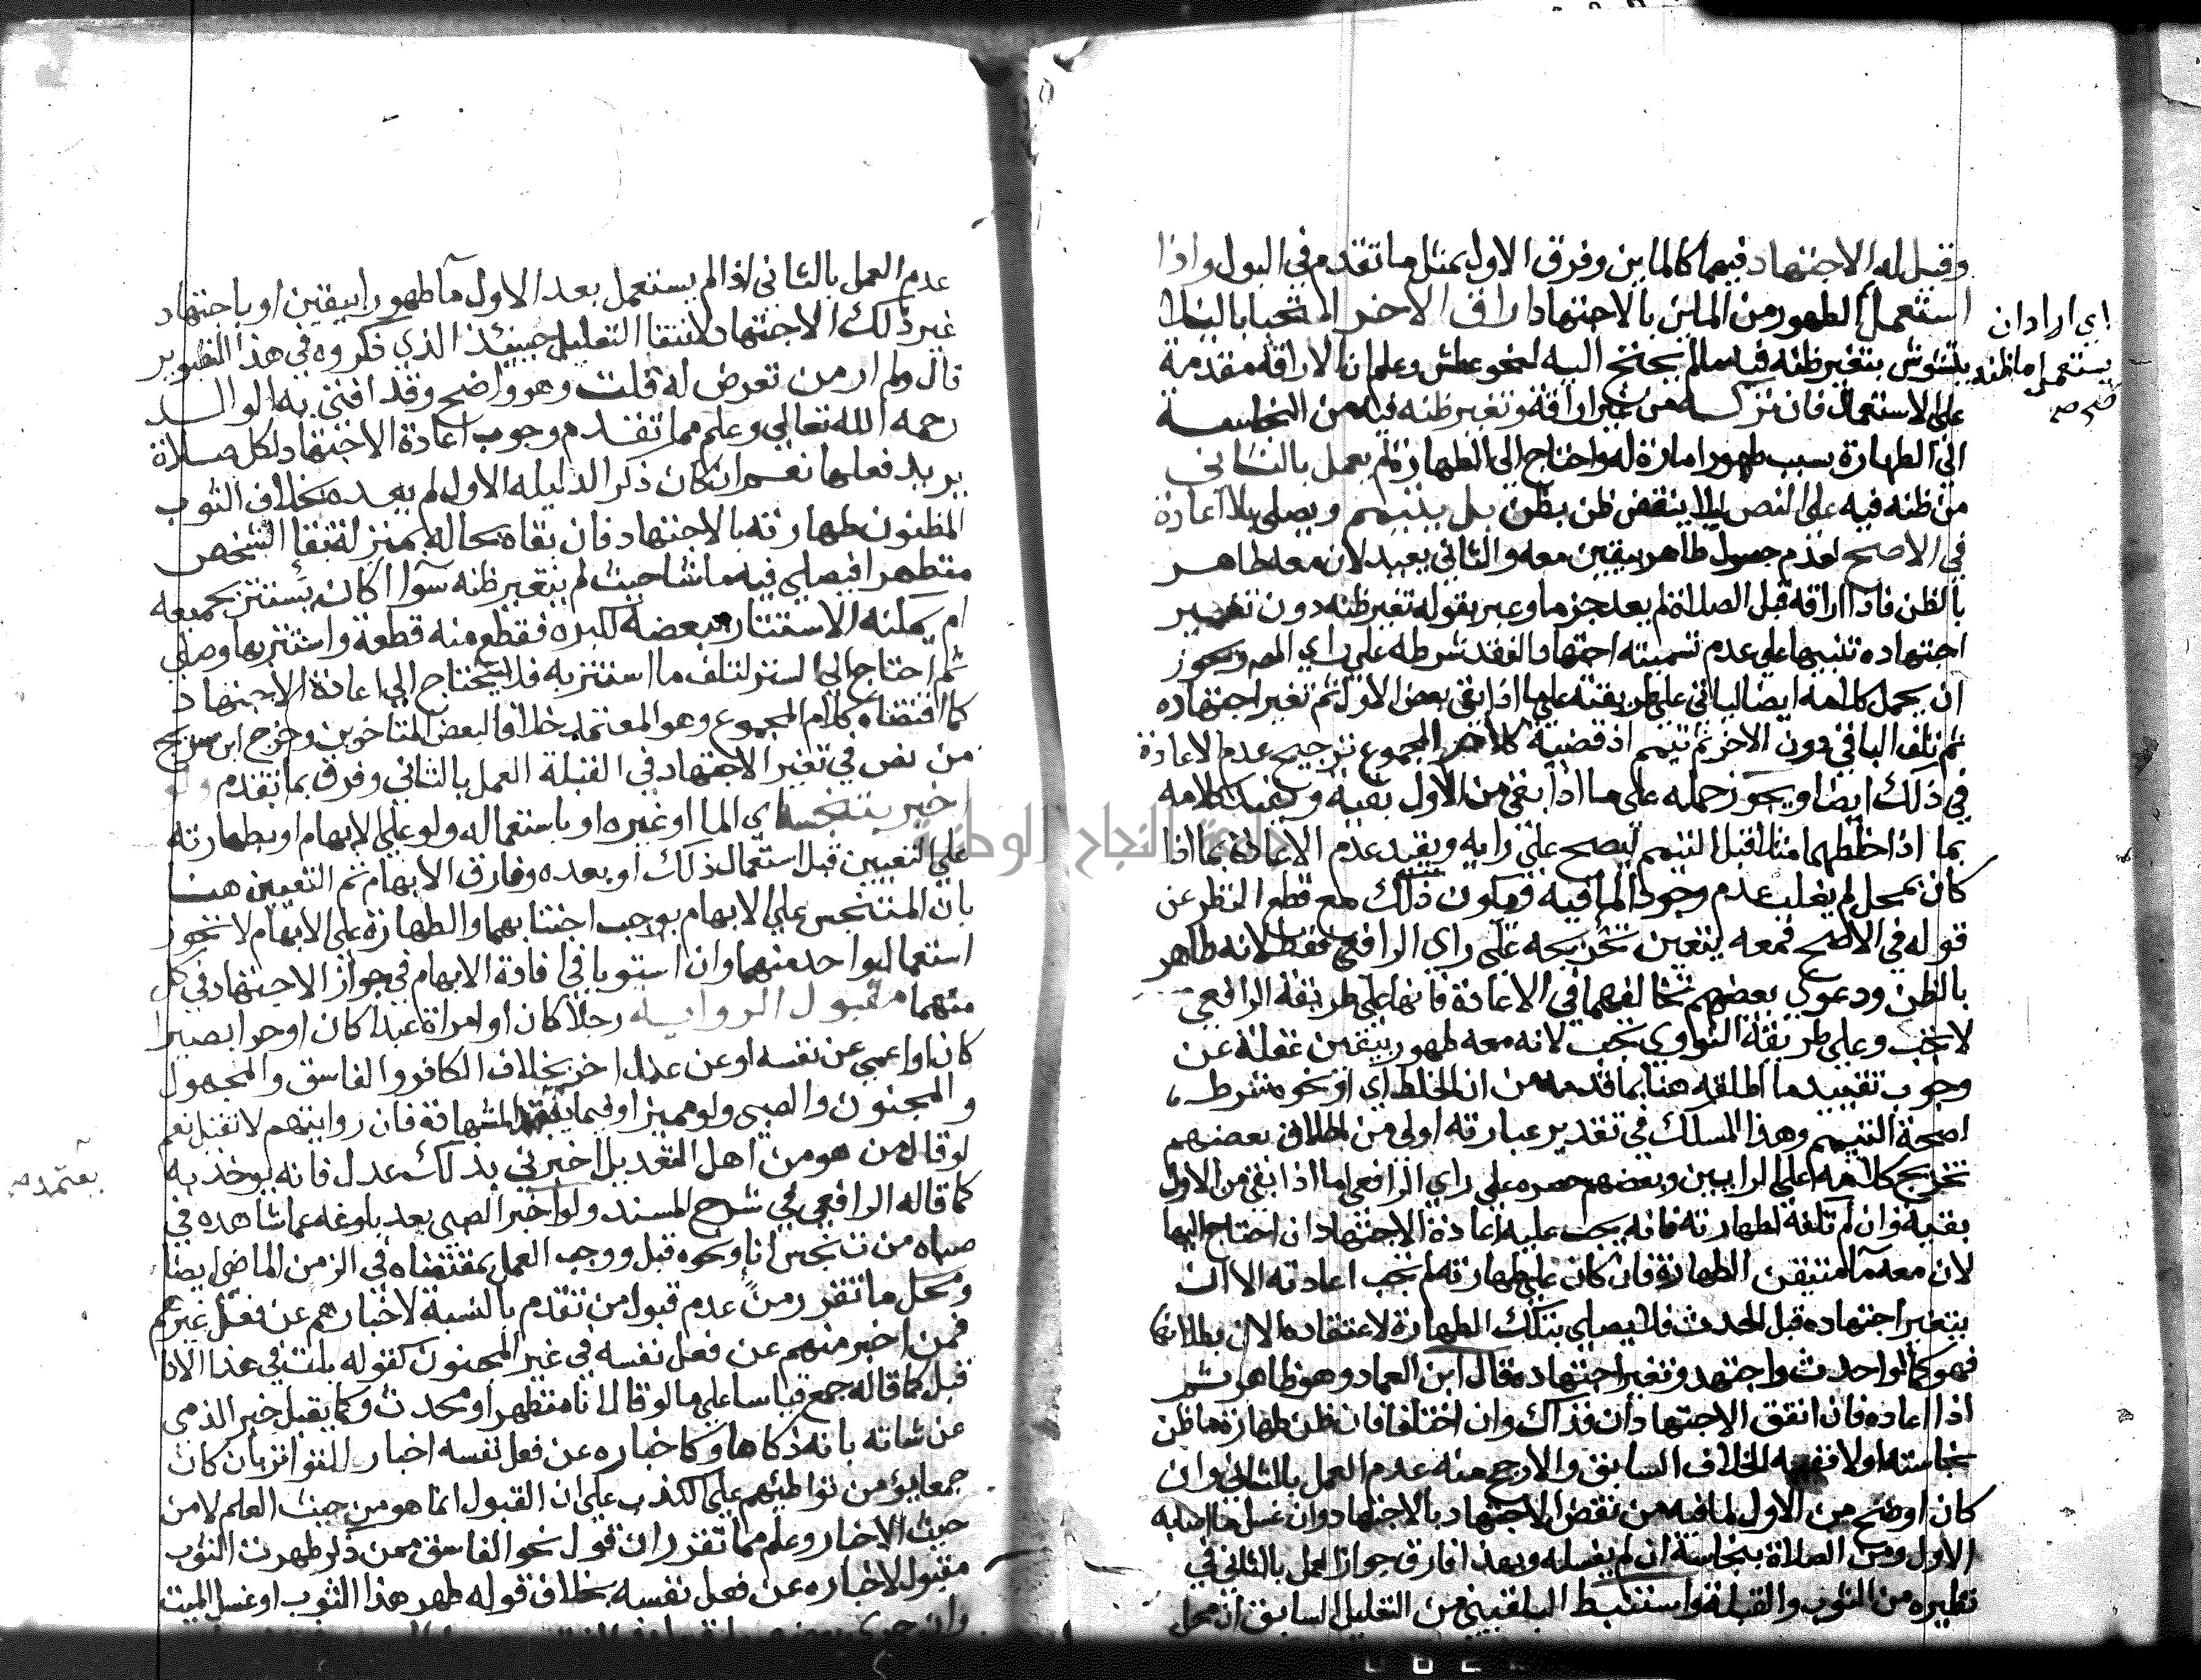 وقيل له الاجتهاد فيهما كالماين وفرق الاول بمثل ما تقدم في البول واذا
استعمل الطهور من الماين بالاجتهاد اراق الاخر استحبابا لئلا
يتشوش بتغير ظنه فيه ما لم يحتج اليه لنحو عطش وعلم ان الاراقة مقدمة
على الاستعمال فان تركه من غير اراقة وتغير ظنه فيه من النجاسة
الى الطهارة بسبب ظهور امارة له واحتاج الى الطهارة لم يعمل بالثاني
من ظنه فيه على النص ليلا ينقض ظن بظن بل يتيمم ويصلي بلا اعادة
في الاصح لعدم حصول طاهر بيقين معه والثاني يعيد لان معه طاهر
بالظن فاذا اراقه قبل الصلاة لم يعد جزما وعبر بقوله تغير ظنه دون تغير
اجتهاده تنبيها على عدم تسميته اجتهادا لفقد شرطه على راي المص ويجوز
ان يحمل كلامه ايضا لياتي على طريقته على ما اذا بقي بعض الاول ثم تغير اجتهاده
ثم تلف الباقي دون الاخر ثم تيمم اذ قضية كلام المجموع ترجيح عدم الاعادة
في ذلك ايضا ويجوز حمله على ما اذا بقي من الاول بقية وتقييد كلامه
بما اذا خلطهما مثلا قبل التيمم ليصح على رايه ويقيد عدم الاعادة بما اذا
كان بمحل لم يغلب عدم وجود الما فيه فيكون ذلك مع قطع النظر عن
قوله في الاصح فمعه يتعين تخريجه على راي الرافعي فقط لانه طاهر
بالظن ودعوى بعضهم تخالفهما في الاعادة فانها على طريقة الرافعي
لا تجب وعلى طريقة النواوي تجب لانه معه طهور بيقين غفلة عن
وجوب تقييد ما اطلقه هنا بما قدمه من ان الخلط اي او نحو شرط
لصحة التيمم وهذا المسلك في تقدير عبارته اولى من اطلاق بعضهم
تخريج كلامه على الرايين وبعضهم حصره على راي الرافعي اما اذا بقي من الاول
بقية وان لم تكفه لطهارته فانه يجب عليه اعادة الاجتهاد ان احتاج اليها
لان معه ما متيقن الطهارة فان كان على طهارته لم تجب اعادته الا ان
يتغير اجتهاده قبل الحدث فلا يصلي بتلك الطهارة لاعتقاده الان بطلانها
فهو كما لو احدث واجتهد وتغير اجتهاده قال ابن العماد وهو ظاهر ثم
اذا اعاده فان اتفق الاجتهادان فذاك وان اختلفا فان ظن طهارة ما ظن
نجاسته اولا ففيه الخلاف السابق والارجح منه عدم العمل بالثاني وان
كان اوضح من الاول لما فيه من نقض الاجتهاد بالاجتهاد وان غسل ما اصابه
الاول ومن الصلاة بنجاسة ان لم يغسله وبهذا فارق جواز العمل بالثاني في
نظيره من الثوب والقبلة واستنبط البلقيني من التعليل السابق ان محل
اي اراد ان
يستعمل ما ظنه
صح صح
عدم العمل بالثاني اذا لم يستعمل بعد الاول ما طهورا بيقين او باجتهاد
غير ذلك الاجتهاد لانتفا التعليل حينئذ الذي ذكروه في هذا التصوير
قال ولم ار من تعرض له قلت وهو واضح وقد افتى به الوالد
رحمه الله تعالى وعلم مما تقدم وجوب اعادة الاجتهاد لكل صلاة
يريد فعلها نعم ان كان ذاكرا لدليله الاول لم يعده بخلاف الثوب
المظنون طهارته بالاجتهاد فان بقاه بحاله بمنزلة بقا الشخص
متطهرا فيصلي فيه ما شا حيث لم يتغير ظنه سوآ اكان يستتر بجميعه
ام يمكنه الاستتار ببعضه لكبره فقطع منه قطعة واستتر بها وصلى
ثم احتاج الى الستر لتلف ما استتر به فلا يحتاج الى اعادة الاجتهاد
كما اقتضاه كلام المجموع وهو المعتمد خلافا لبعض المتاخرين وخرج ابن سريج
من نص في تغير الاجتهاد في القبلة العمل بالثاني وفرق بما تقدم ولو
اخبر بتنجسه اي الما او غيره او باستعماله ولو على الابهام او بطهارته
على التعيين قبل استعمال ذلك او بعده وفارق الابهام ثم التعيين هنا
بان المتنجس على الابهام يوجب اجتنابهما والطهارة على الابهام لا تجوز
استعمال واحد منهما وان استويا في افادة الابهام في جواز الاجتهاد في كل
منهما مقبول الرواية رجلا كان او امراة عبدا كان او حرا بصيرا
كان او اعمى عن نفسه او عن عدل اخر بخلاف الكافر والفاسق والمجهول
والمجنون والصبي ولو مميزا او فيما المشاهدة فان روايتهم لا تقبل نعم
لو قال من هو من اهل التعديل اخبرني بذلك عدل فانه يوخذ به
كما قاله الرافعي في شرح المسند ولو اخبر الصبي بعد بلوغه عما شاهده في
صباه من تنجس انا ونحوه قبل ووجب العمل بمقتضاه في الزمن الماضي ايضا
ومحل ما تقرر من عدم قبول من تقدم بالنسبة لاخبارهم عن فعل غيرهم
فمن اخبر منهم عن فعل نفسه في غير المجنون كقوله بلت في هذا الانا
قبل كما قاله جمع قياسا على ما لو قال انا متطهر او محدث وكما يقبل خبر الذمي
عن شاته بانه ذكاها وكاخباره عن فعل نفسه اخبار التواتر بان كان
جمعا يؤمن تواطئهم على الكذب على ان القبول انما هو من حيث العلم لا من
حيث الاخبار وعلم مما تقرر ان قول نحو الفاسق ممن ذكر طهرت الثوب
مقبول لاخباره عن فعل نفسه بخلاف قوله طهر هذا الثوب او غسل الميت
يعتمد
جامعة النجاح الوطنية